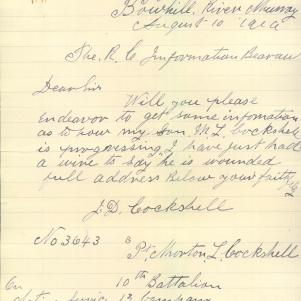 Bowhill, River Murray
August 10 1916
The. R. C Information Bearau
Dear Sir
Will you please
Endeavor to get some infomation
as to how my Son. M. L. Cockshell
is progressing, I have just had
a wire to say he is wounded
full address Below your faithfly
J. D. Cockshell
No 3643
Pt Morton L. Cockshell
On 10th Battalion
Active Service 12 Company